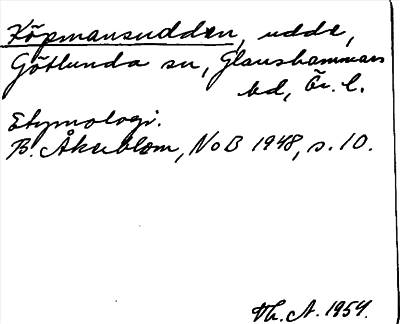 Köpmansudden, udde,
Götlunda sn, Glanshammars
hd, Ör. l.
Etymologi.
B. Åkerblom, NoB 1948, s. 10.
Th. A. 1954.